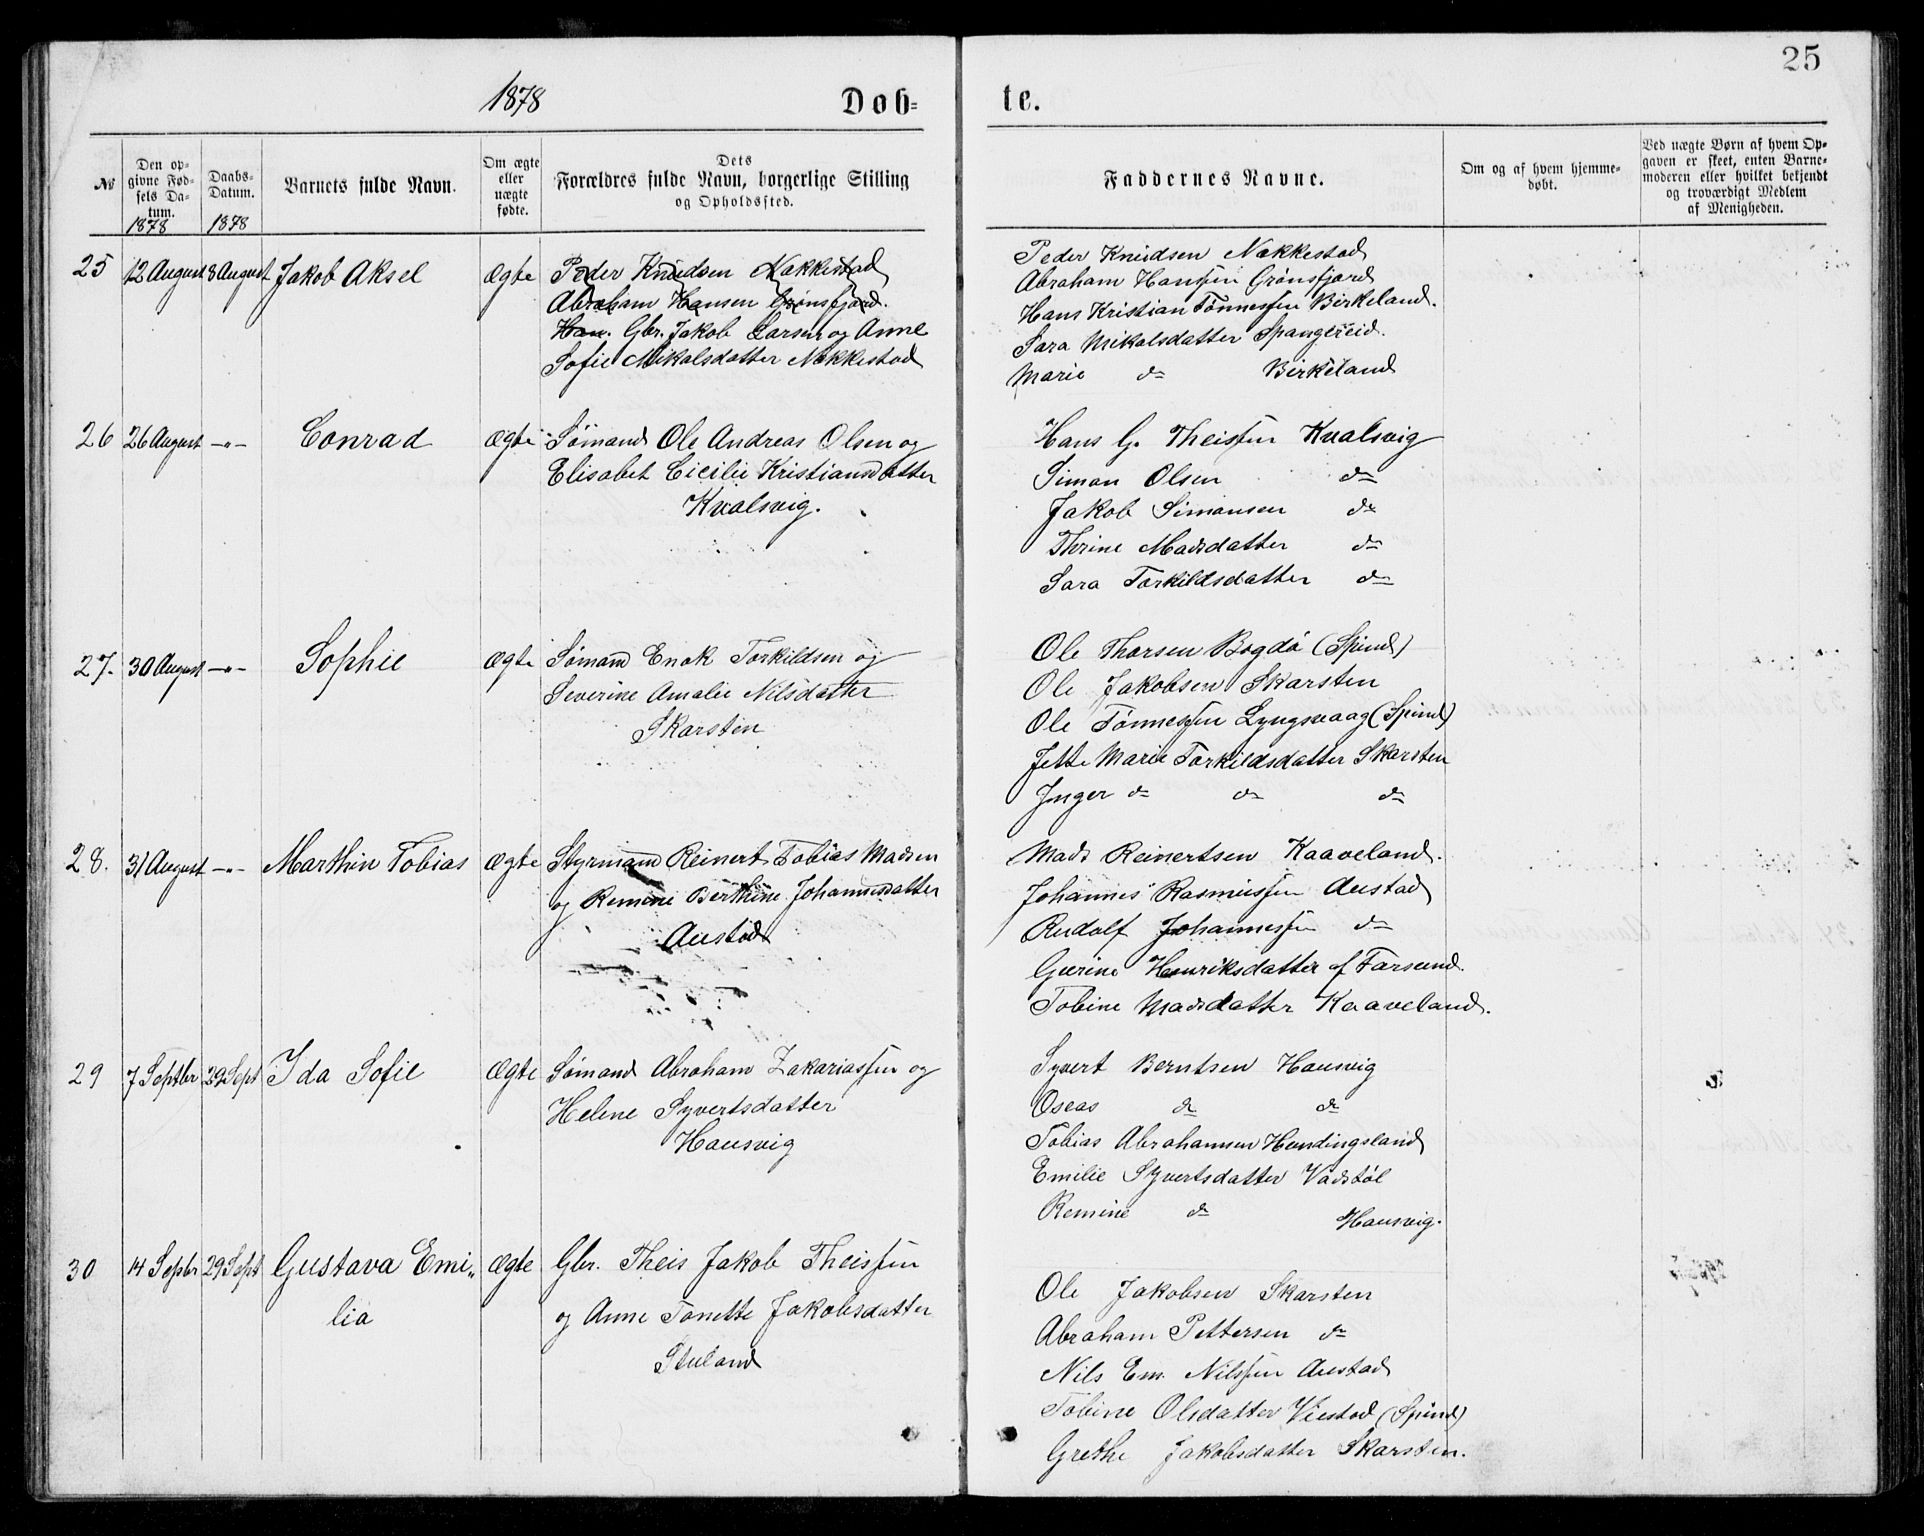 25
1878
Døb-
te.
№
Den opgivne Fødsels Datum.
1878
Daabs-Datum.
1878
Barnets fulde Navn.
Om ægte eller uægte fødte.
Dets Forældres fulde Navn, borgerlige Stilling og Opholdssted.
Faddernes Navne.
Om og af hvem hjemmedøbt.
Ved uægte Børn af hvem Opgaven er skeet, enten Barnemoderen eller hvilket bekjendt og troværdigt Medlem af Menigheden.
25 12 August 8 August Jakob Aksel Ægte Peder Knudsen Nøkkestad
Abraham Hansen Grønsfjord.
Han. Gbr. Jakob Larsen og Anne
Sofie Mikalsdatter Nøkkestad
Peder Knudsen Nøkkestad
Abraham Hansen Grønsfjord
Hans Kristian Tønnessen Birkeland.
Sara Mikalsdatter Spangereid.
Marie do Birkeland
26 26 August -"- Conrad Ægte Sømand Ole Andreas Olsen og
Elisabet Cicilie Kristiansdatter
Kvalsvig.
Hans G. Theissen Kvalsvig
Simon Olsen do
Jakob Simonsen do
Thrine Madsdatter do
Sara Torkildsdatter do
27. 30 August -"- Sophie Ægte Sømand Enok Torkildsen og
Severine Amalie Nilsdatter
Skarsten
Ole Thorsen Bogdø (Spind)
Ole Jakobsen Skarsten
Ole Tønnessen Lyngsvaag (Spind)
Jette Marie Torkildsdatter Skarsten
Inger do do do
28. 31 August -"- Marthin Tobias Ægte Styrmand Reinert Tobias Madsen
og Remine Berthine Johannesdatter
Austad
Mads Reinertsen Kaaveland.
Johannes Rasmussen Austad
Rudolf Johannessen do
Gurine Henriksdatter af Farsund.
Tobine Madsdatter Kaaveland.
29 7 Septbr 29 Sept Ida Sofie Ægte Sømand Abraham Zakariassen og
Helene Syvertsdatter
Hausvig
Syvert Berntsen Hausvig
Oseas do do
Tobias Abrahamsen Hendingsland
Emilie Syvertsdatter Vadstøl
Remine do Hausvig.
30 14 Septbr 29 Sept Gustava Emi„
lia
Ægte Gbr. Theis Jakob Theissen
og Anne Tonette Jakobsdatter
Stuland
Ole Jakobsen Skarsten
Abraham Pettersen do
Nils Em. Nilssen Austad
Tobine Olsdatter Viestad (Spind)
Grethe Jakobsdatter Skarsten.